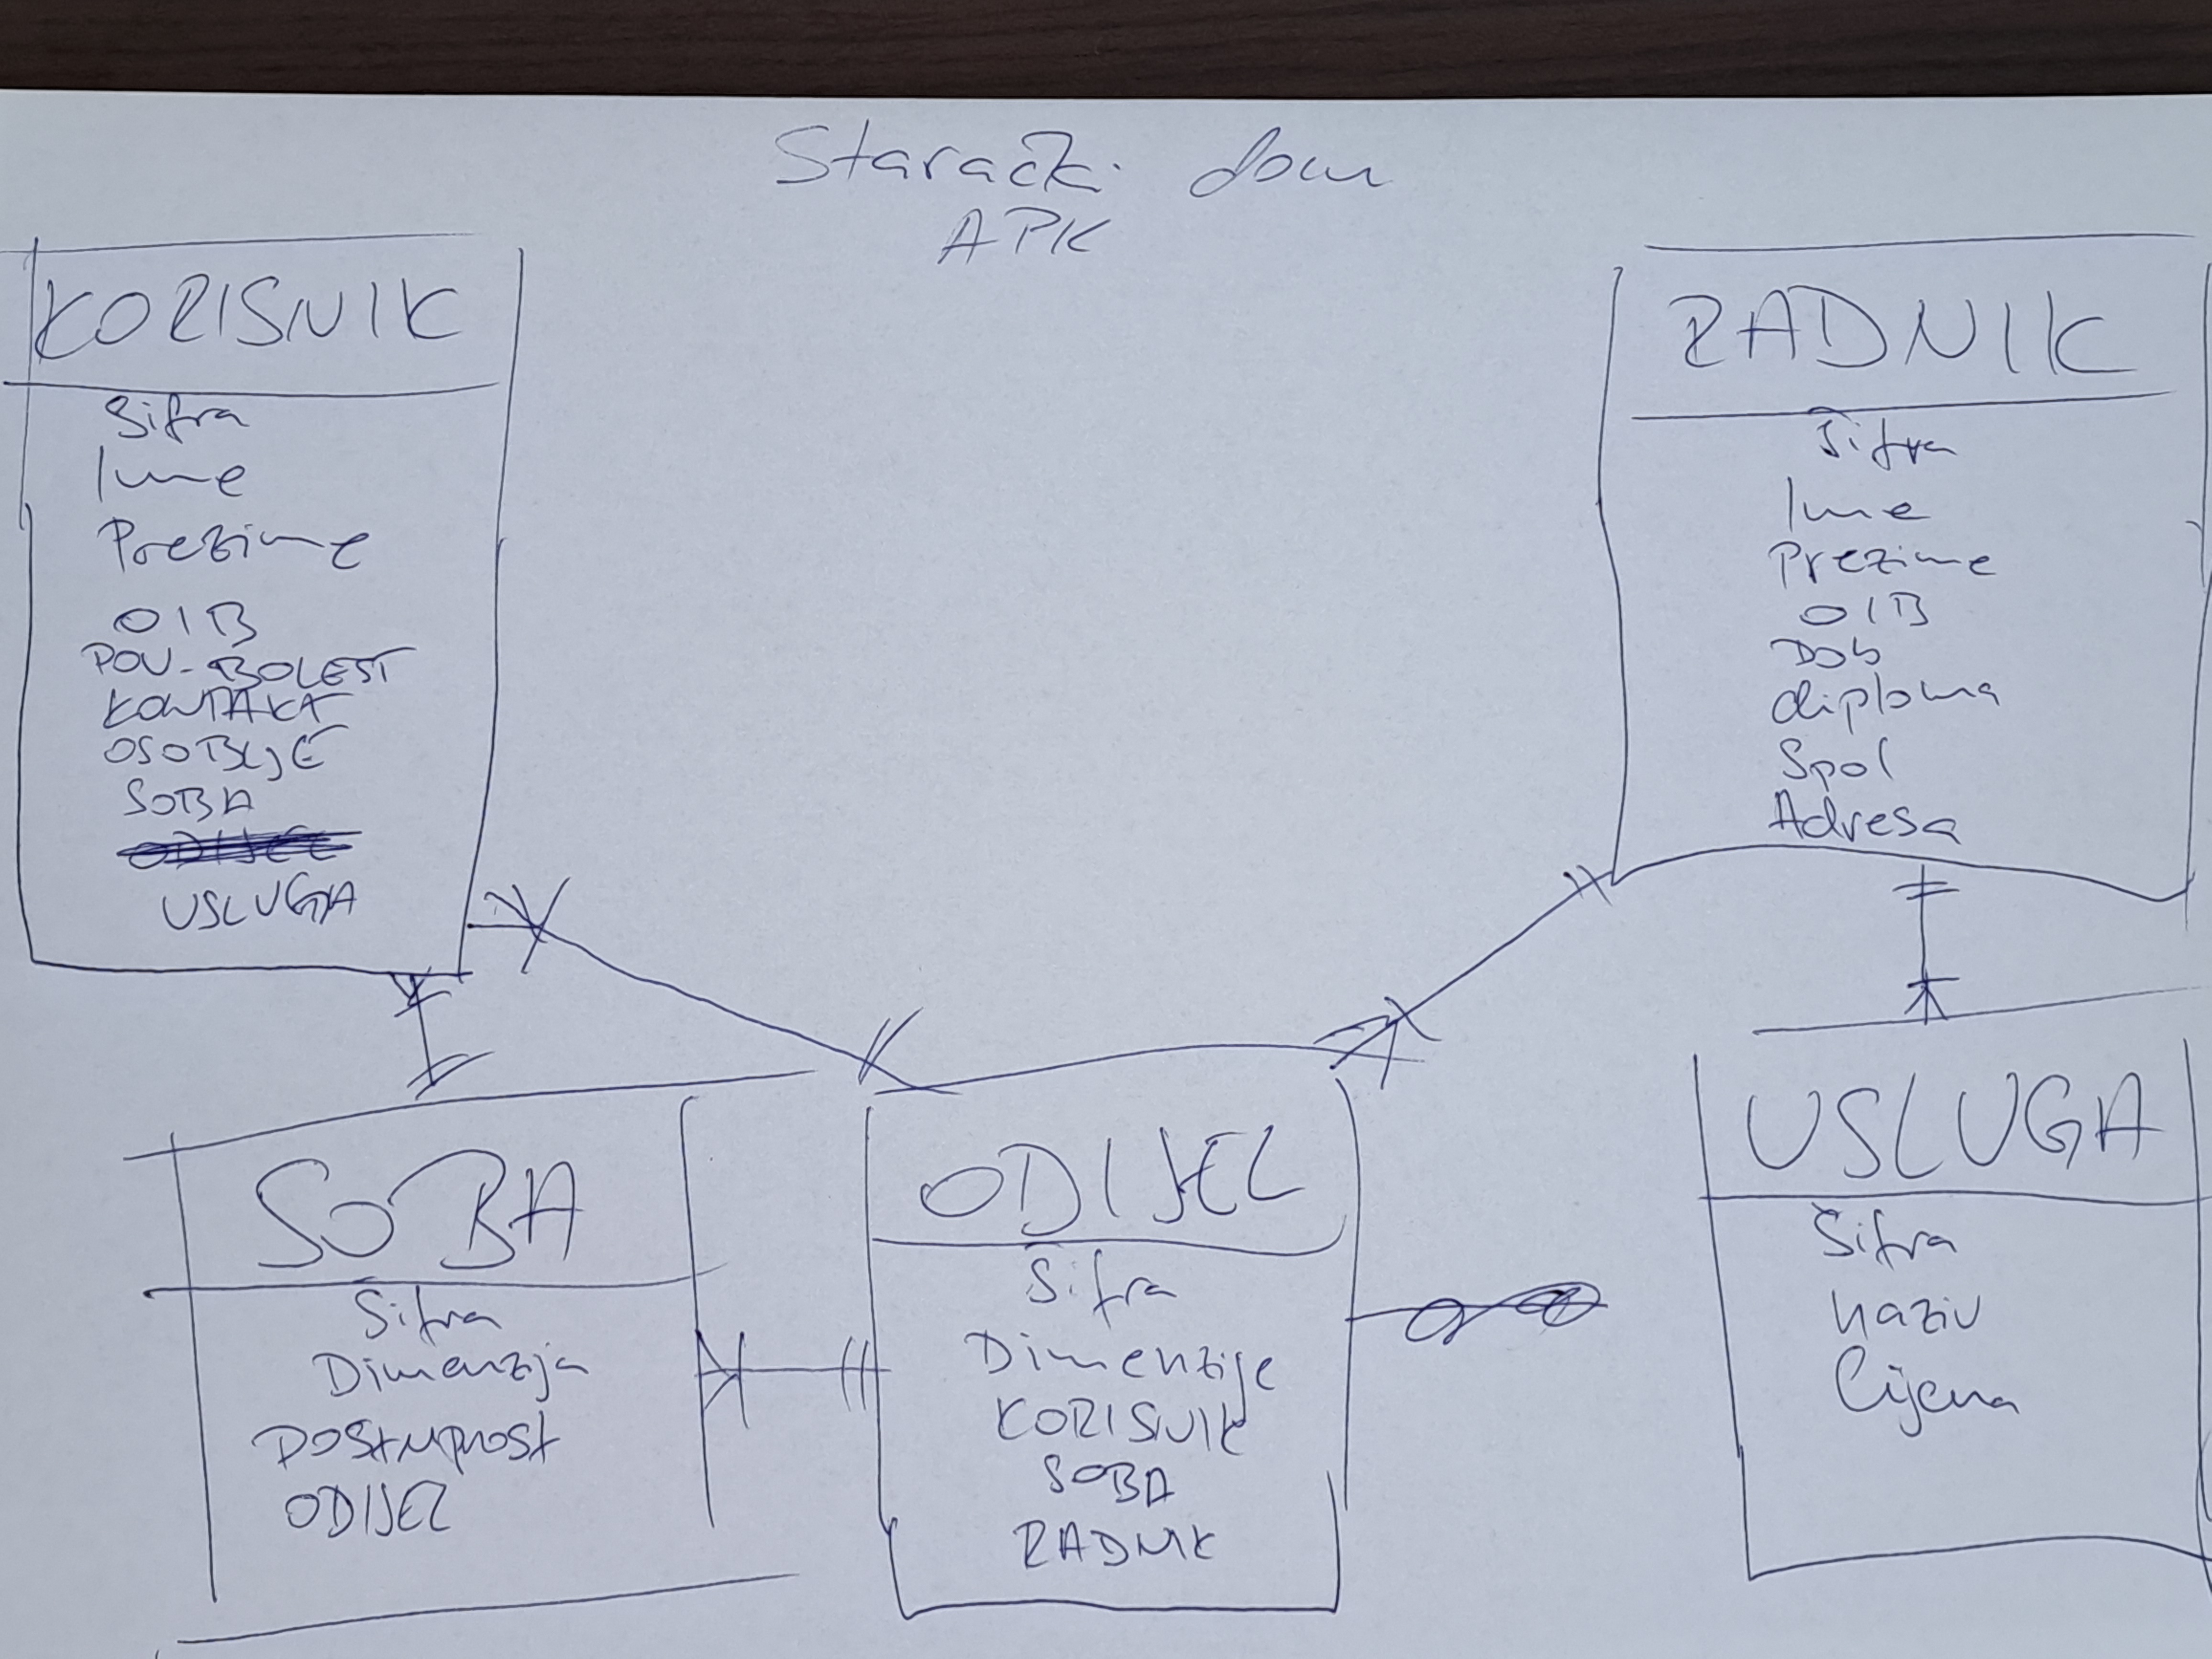 Starački dom
APK
KORISNIK
Šifra
Ime
Prezime
OIB
POV. BOLEST
KONTAKT
OSOBLJE
SOBA
USLUGA
RADNIK
Šifra
Ime
Prezime
OIB
Dob
diploma
Spol
Adresa
SOBA
Šifra
Dimenzija
POSTUPNOST
ODJEL
ODJEL
Šifra
Dimenzije
KORISNIK
SOBA
RADNIK
USLUGA
Šifra
Naziv
Cijena